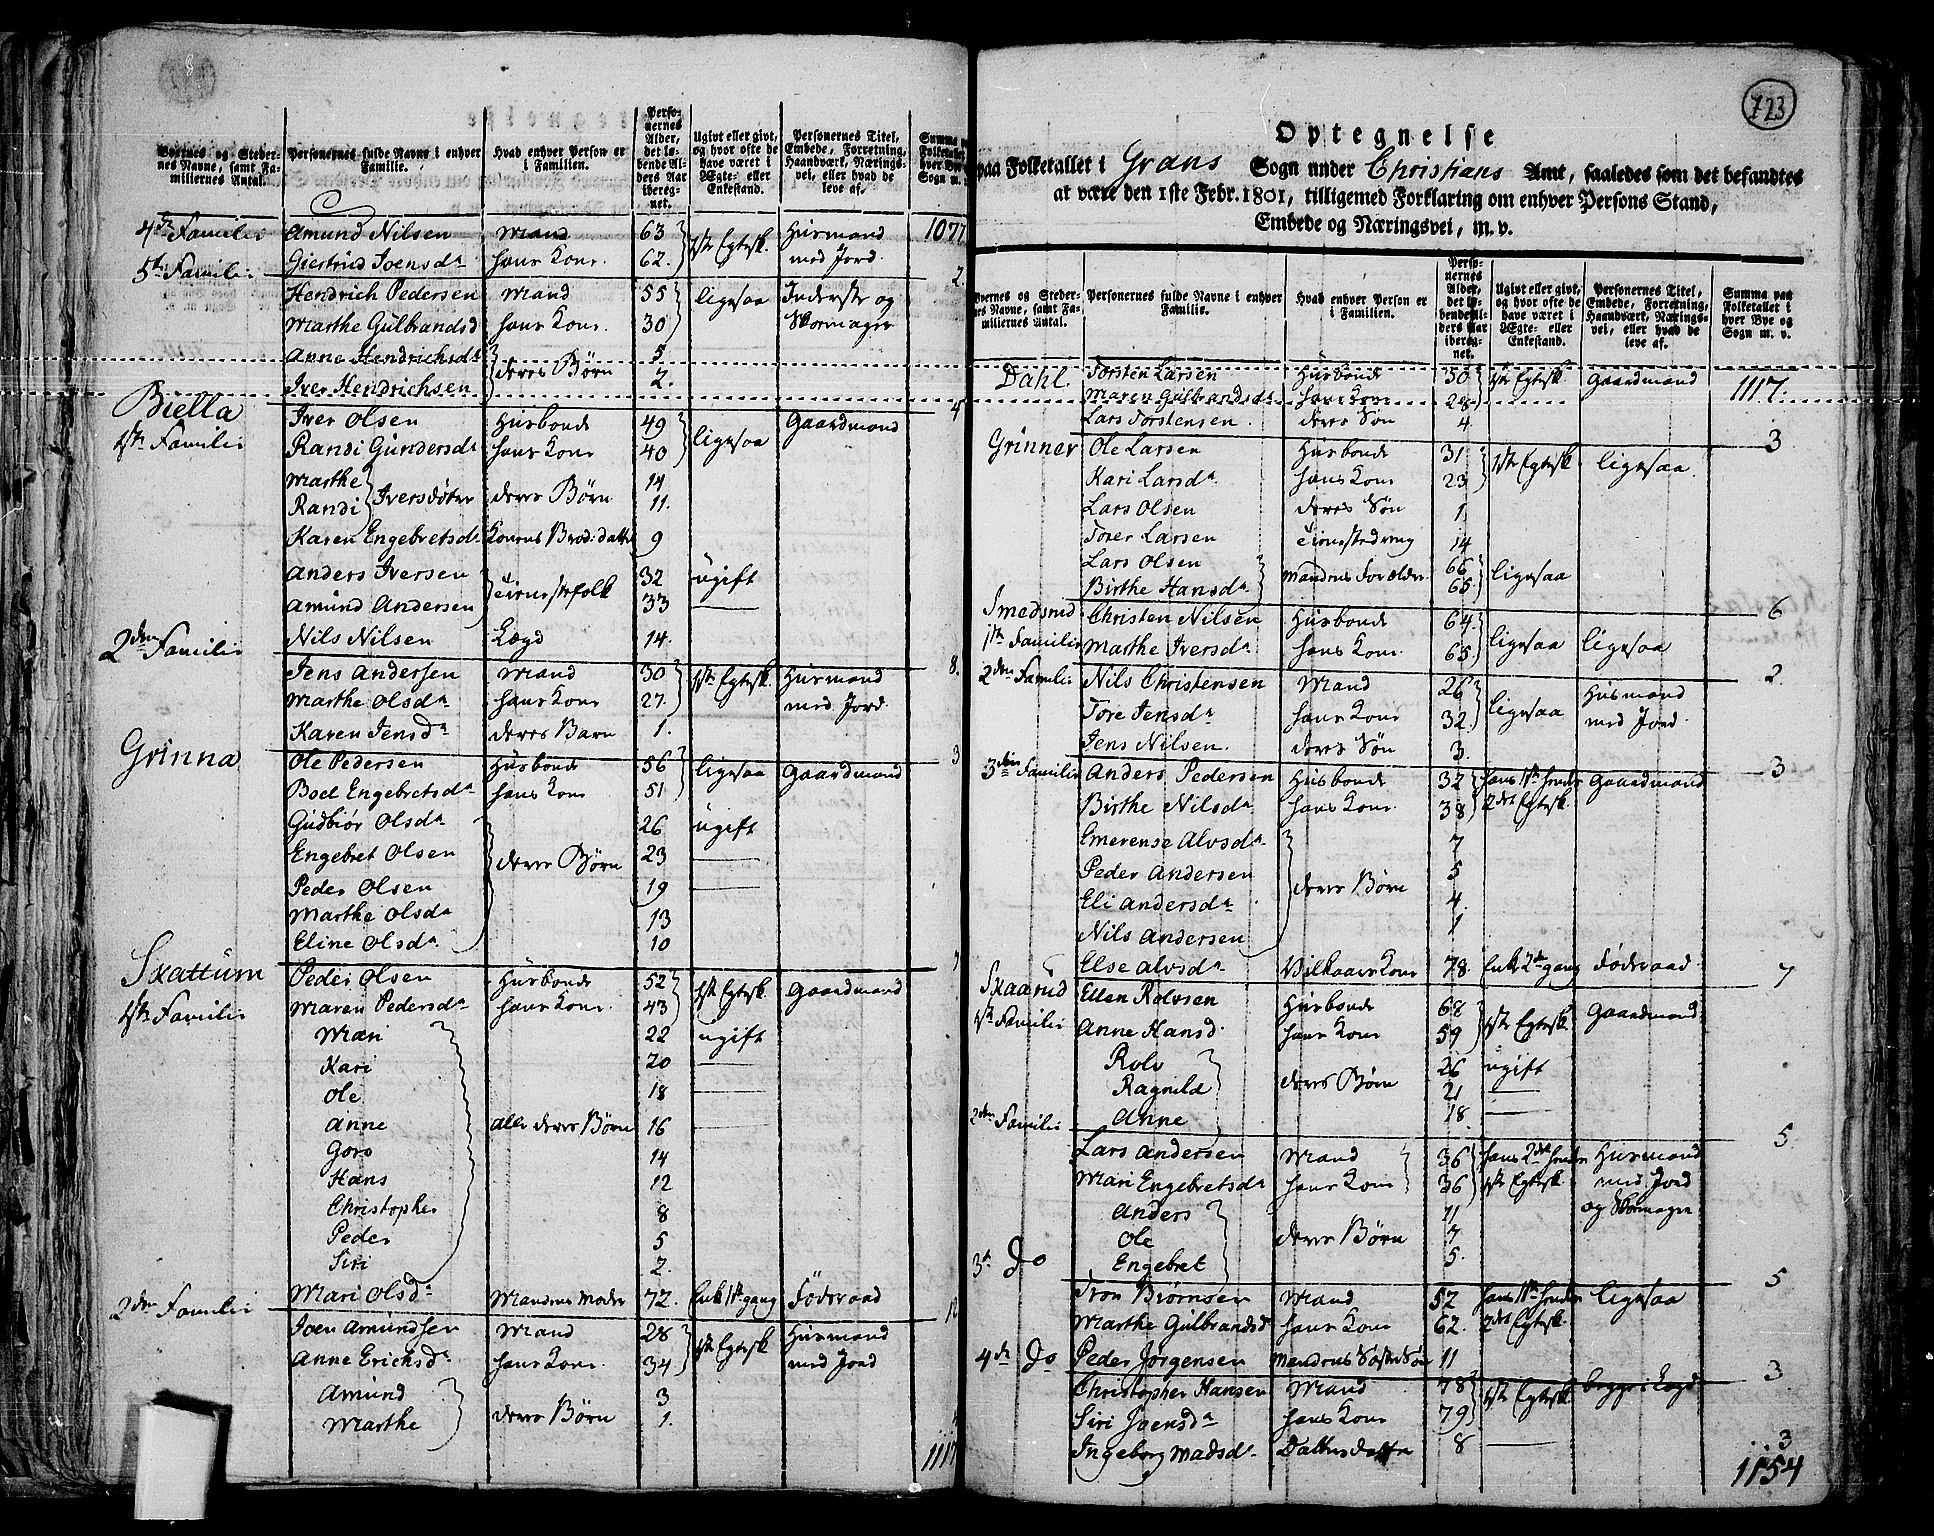 Byernes og Steder-
nes Navne, samt Fa-
miliernes Antal.
Personernes fulde Navne i enhver
Familie.
Hvad enhver Person er
i Familien.
Perso-
nernes
Alder,
det lø-
bende Al-
ders Aar
ibereg-
net.
Ugivt eller givt,
og hvor ofte de
have været i
Ægte- eller
Enkestand.
Personernes Titel,
Embede, Forretning,
Haandværk, Nærings-
vei, eller hvad de
leve af.
Summa paa
Folketallet
hver Bye og
Sogn m. v.
4de Familie Amund Nilsen Mand 63 1ste Egtesk. Husmand 1077
Giertrud Joensdr hans Kone 62. med Jord
5te Familie 2
Hendrich Pedersen Mand 55 ligesaa Inderste og
Marthe Gulbrandsd hans Kone 30 Skomager
Anne Hendrichsdr deres Børn 5
Iver Hendrichsen 2.
Biella 4
Iver Olsen Husbonde 49 ligesaa Gaardmand
1ste Familie Randi Gundersdr hans Kone 40
Marthe Iversdøtre deres Børn 14
Randi 11.
Karen Engebretsdr Konens Brod: datter 9
Anders Iversen Tienestefolk 32 ugift
Amund Andersen 33
Nils Nilsen Lægd 14.
2den Familie 8.
Jens Andersen Mand 30 1ste Egtesk. Husmand
Marthe Olsdr hans Kone 27. med Jord
Karen Jensdr deres Barn 1.
Grinna 3
Ole Pedersen Husbonde 56 ligesaa Gaardmand
Boel Engebretsdr hans Kone 51
Gudbiør Olsdr deres Børn 26 ugift
Engebret Olsen 23
Peder Olsen 19
Marthe Olsdr 13
Eline Olsdr 10
Skattum 7
Peder Olsen Husbonde 52 1ste Egtesk. Gaardmand
1ste Familie Maren Pedersdr hans Kone 43
Mari 22 ugift
Kari 20
Ole 18
Anne alle deres Børn 16
Goro 14
Hans 12
Christopher 8
Peder 5
Siri 2.
Mari Olsdr Mandens Moder 72. Enke 1ste gang Føderaad
2den Familie 12
Joen Amundsen Mand 28 1ste Egtesk Husmand
Anne Erichsdr hans Kone 34 med Jord
Amund deres Børn 3
Marthe 1.
4
1117
723
Optegnelse
paa Folketallet i Grans Sogn under Christians Amt, saaledes som det befandtes
at være den 1ste Febr. 1801, tilligemed Forklaring om enhver Persons Stand,
Embede og Næringsvei, m. v.
Byernes og Steder-
nes Navne, samt Fa-
miliernes Antal.
Personernes fulde Navne i enhver
Familie.
Hvad enhver Person er
i Familien.
Perso-
nernes
Alder,
det lø-
bende Al-
ders Aar
ibereg-
net.
Ugivt eller givt,
og hvor ofte de
have været i
Ægte- eller
Enkestand.
Personernes Titel,
Embede, Forretning,
Haandværk, Nærings-
vei, eller hvad de
leve af.
Summa paa
Folketallet i
hver Bye og
Sogn m. v.
Dahl Torsten Larsen Husbonde 50 1ste Egtesk. Gaardmand 1117.
Maren Gulbrandsdr hans Kone 28
Lars Torstensen deres Søn 4
Grinner 3
Ole Larsen Husbonde 31 1ste Egtesk ligesaa
Kari Larsdr hans Kone 23
Lars Olsen deres Søn 1
Torer Larsen Tienestedreng 14
Lars Olsen Mandens Forældre 66 ligesaa
Birthe Hansdr 65
Smedsrud 6
Christen Nilsen Husbonde 64 ligesaa ligesaa
1ste Familie Marthe Iversdr hans Kone 65
2den Familie 2
Nils Christensen Mand 26 ligesaa Husmand
Tore Jensdr hans Kone 32 med Jord
Jens Nilsen deres Søn 3
3die Familie 3
Anders Pedersen Husbonde 32 hans 1ste hendes Gaardmand
Birthe Nilsdr hans Kone 38 2det Egtesk
Emerense Alvsdr deres Børn 7
Peder Andersen 5
Eli Andersdr 4
Nils Andersen 1
Else Alvsdr Vilkaars Kone 78. Enke 2den gang Føderaad
Skaarud 7
Ellen Rolvsen Husbonde 68 1ste Egtesk. Gaardmand
1ste Familie Anne Hansd. hans Kone 59
Rolv deres Børn 26 ugift
Ragnild 21
Anne 18
2den Familie 5
Lars Andersen Mand 36 hans 2det hendes Husmand
Mari Engebretsdr hans Kone 36 1ste Egtesk. med Jord
og Skomager
Anders deres Børn 11
Ole 7
Engebret 5.
3de Do 5
Tron Biørnsen Mand 52 hans 1ste hendes ligesaa
Marthe Gulbrandsd hans Kone 62. 2det Egtesk.
Peder Jørgensen Mandens Søster Søn 11
4de Do 3
Christopher Hansen Mand 78 1ste Egtesk.
Siri Joensdr hans Kone 79
Ingeborg Madsdr Datters datter 8
3
1154